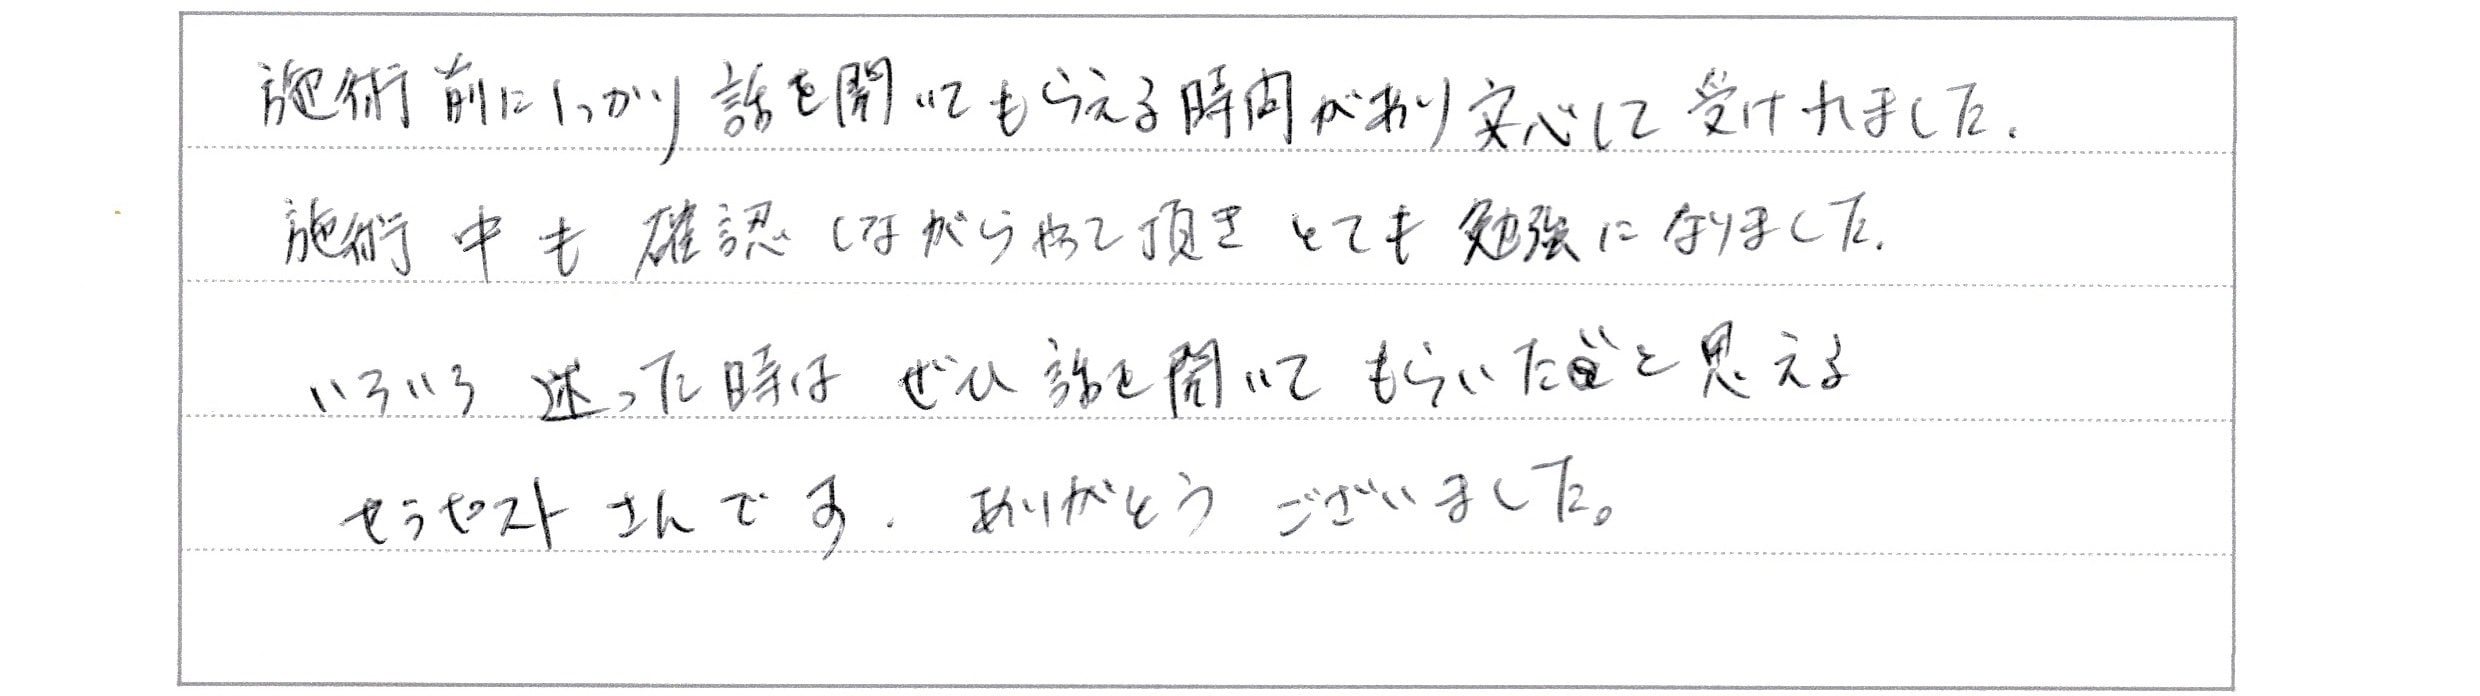 施術前にしっかり話を聞いてもらえる時間があり安心して受けれました.
施術中も確認しながらやって頂きとても勉強になりました.
いろいろ迷った時はぜひ話を聞いてもらいたいと思える
セラピストさんです. ありがとうございました。